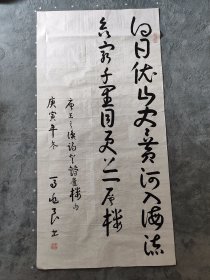 白日依山尽黄河入海流
欲穷千里目更上一层楼
唐王之涣诗登鹳雀楼
庚寅年冬